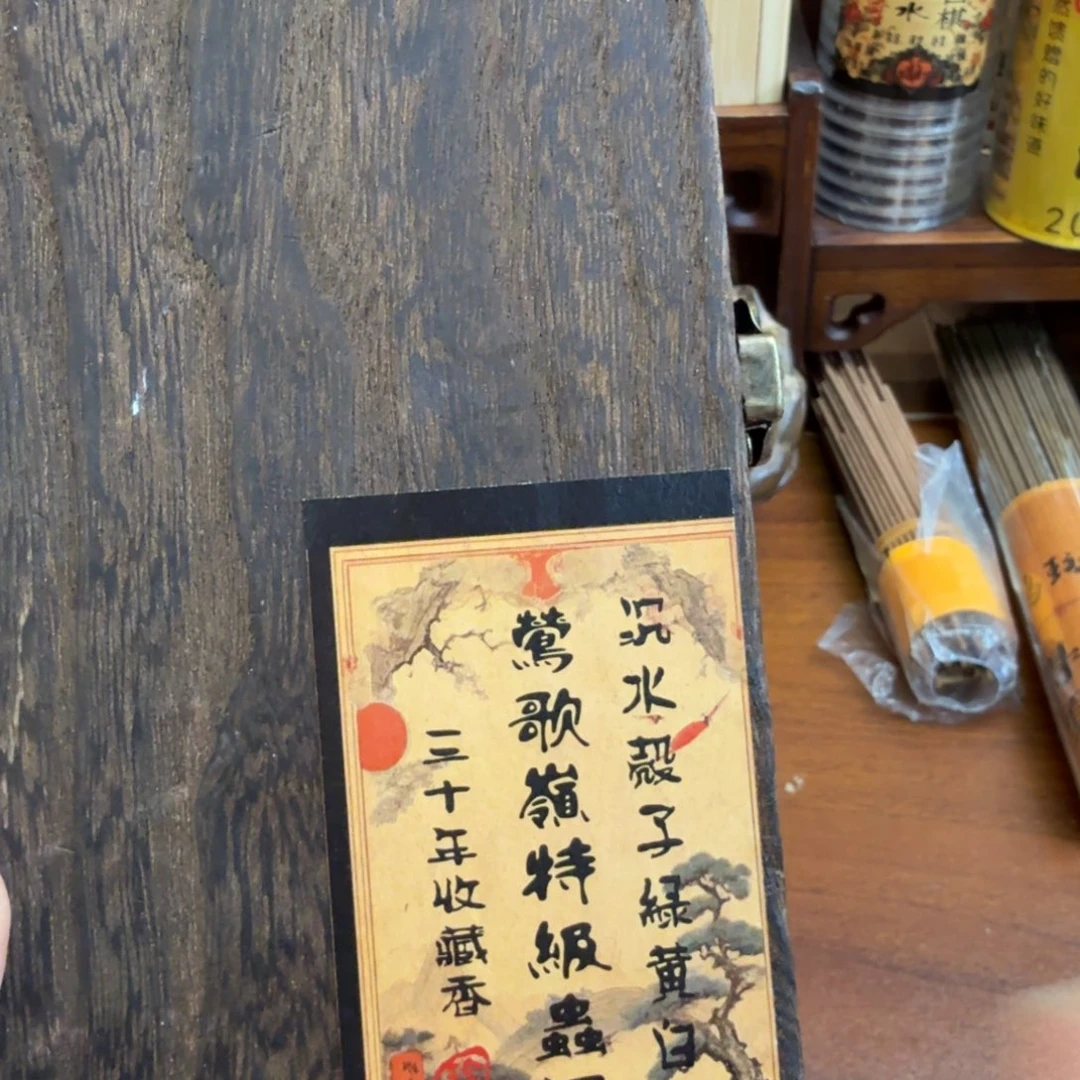 沉水殼子綠黃白
鶯歌嶺特級蟲
三十年收藏香
水
棋
馈赠的好味道
20